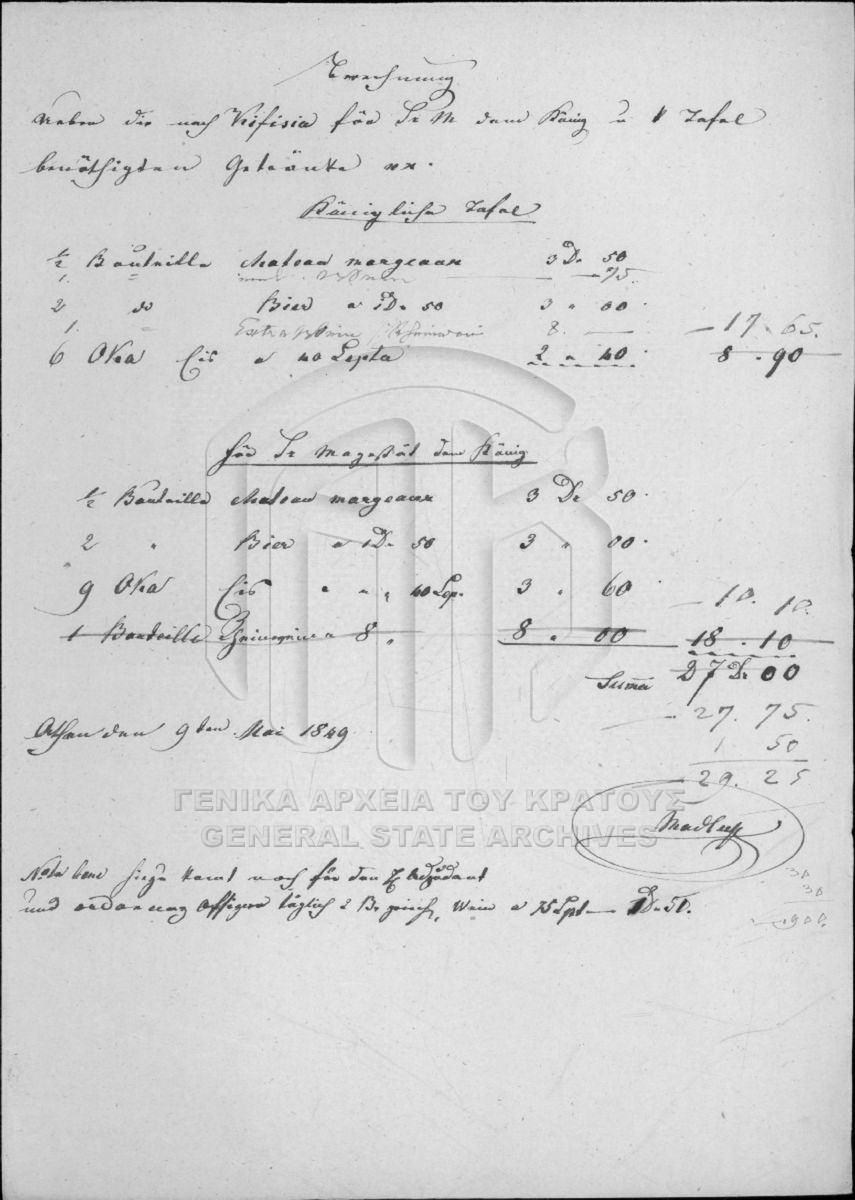 Berechnung
Ueber die nach Kifisia für Sr M dem König u. Tafel
benöthigten Getränke xx.
Königliche Tafel
½ Bouteille Chateau margeaux 3 Dr 50
1. " – 75.
2 do Bier a 1 Dr 50 3 " 00
1. " Extra Wein Rheinwein 8. — – 17. 65.
6 Oka Eis a 40 Lepta 2 " 40 8 . 90
für Sr Magestät dem König
½ Bouteille Chateau margeaux 3 Dr 50
2 " Bier a 1 Dr 50 3 " 00
9 Oka Eis " a " 40 Lep. 3 " 60 – 10. 10.
1 Bouteille Rheinwein a 8 " 8 " 00 18 . 10
Summa 27 Dr 00
– 27. 75.
Athen den 9ten Mai 1849
1 50
29. 25
ΓΕΝΙΚΑ ΑΡΧΕΙΑ ΤΟΥ ΚΡΑΤΟΥΣ
GENERAL STATE ARCHIVES
Nota bene hiezu komt noch für den Adjudant
und ordonnaz Offizier täglich 2 Br griech. Wein a 75 Lpt — 1 Dr 50.
30
30
900.